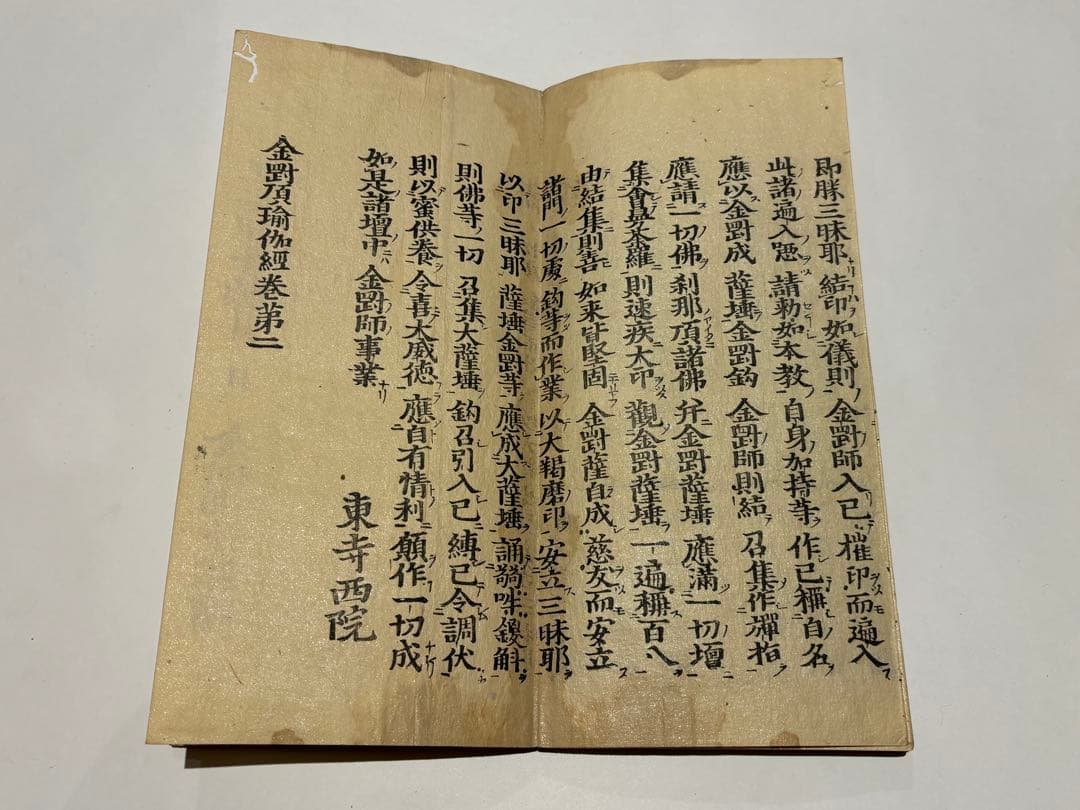 即勝三昧耶 結印如儀則 金剛師入已 摧印而遍入
此諸遍入愍 請勅如本教 自身加持等 作已稱自名
應以金剛成 薩埵金剛鈎 金剛師則結 召集作彈指
應請一切佛 刹那頂諸佛 并金剛薩埵 應滿一切壇
集會曼荼羅 則速疾大印 觀金剛薩埵 一遍稱百八
由結集則喜 如来皆堅固 金剛薩自成 慈友而安立
諸門一切處 鈎等而作業 以大羯磨印 安立三昧耶
以印三昧耶 薩埵金剛等 應成大薩埵 誦弱吽鑁斛
則佛等一切 召集大薩埵 鈎召引入已 縛已令調伏
則以蜜供養 令喜大威德 應白有情利 願作一切成
如是諸壇中 金剛師事業
東寺西院
金剛頂瑜伽經卷苐二